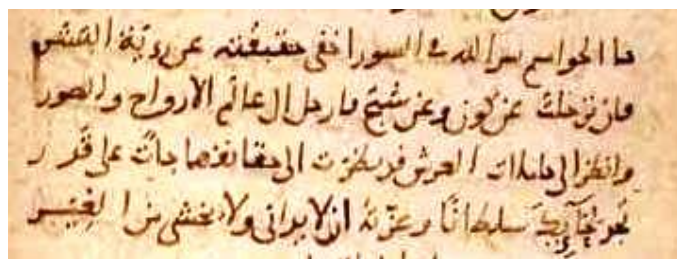 حا الحواميم سر الله في السور اخفى حقيقته عن روية البشر
فان ترحلت عن كون وعن شبح فارحل الى عالم الارواح والصور
وانظر الى حاملات العرش قد نظرت الى حقايقها جات على قدر
تجد لحايك سلطانا وعزته ان لا يدانى ولا يخشى من الغير